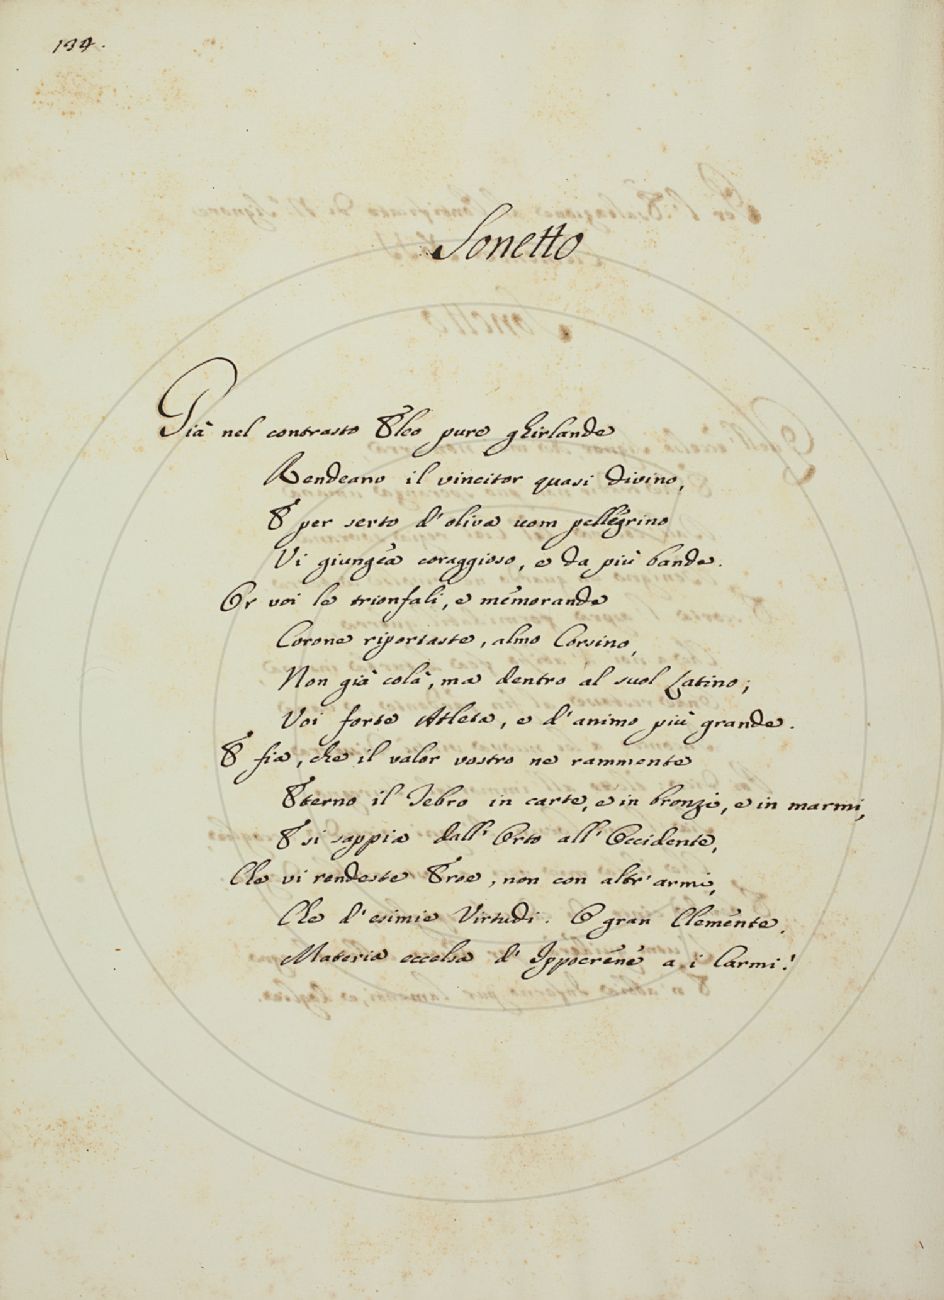 134.
Sonetto
Già nel contrasto Eleo pure ghirlande
Rendeano il vincitor quasi divino,
E per serto d'oliva uom pellegrino
Vi giungea coraggioso, e da più bande.
Or voi le trionfali, e memorande
Corone riportaste, almo Corsino,
Non già colà, ma dentro al suol Latino;
Voi forte Atleta, e d'animo più grande.
E fia, che il valor vostro ne rammente
Eterno il Tebro in carte, e in bronzi, e in marmi,
E si sappia dall' Orto all' Occidente,
Che vi rendeste Eroe, non con altr' armi,
Che d'esimie Virtudi. O gran Clemente,
Materia eccelsa d' Ippocrene a i Carmi!